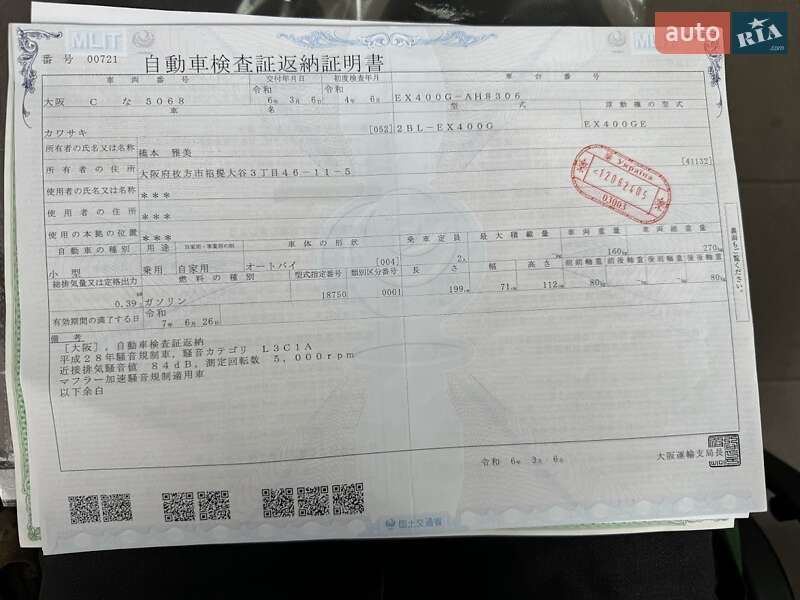 MLIT
MLIT
auto RIA .com
番号 00721
自動車検査証返納証明書
車両番号 交付年月日 初度検査年月 車台番号
大阪 C な 5068 令和 6年 3月 6日 令和 4年 6月 EX400G-AH8306
車名 型式 原動機の型式
カワサキ [052] 2BL-EX400G EX400GE
所有者の氏名又は名称 橋本 雅美
[41132]
所有者の住所 大阪府枚方市招提大谷3丁目46-11-5
使用者の氏名又は名称 ＊＊＊
使用者の住所 ＊＊＊
使用の本拠の位置 ＊＊＊
Україна
<12062405
03003
自動車の種別 用途 自家用・事業用の別 車体の形状 乗車定員 最大積載量 車両重量 車両総重量
小型 乗用 自家用 オートバイ [004] 2人 160kg 270kg
総排気量又は定格出力 燃料の種別 型式指定番号 類別区分番号 長さ 幅 高さ 前前軸重 前後軸重 後前軸重 後後軸重
0.39 ガソリン 18750 0001 199cm 71cm 112cm 80kg -kg -kg 80kg
有効期間の満了する日 令和 7年 6月 26日
備考
[大阪]，自動車検査証返納
平成28年騒音規制車，騒音カテゴリ L3C1A
近接排気騒音値 84dB，測定回転数 5，000rpm
マフラー加速騒音規制適用車
以下余白
裏面もご覧ください。
令和 6年 3月 6日
大阪運輸支局長
国土交通省